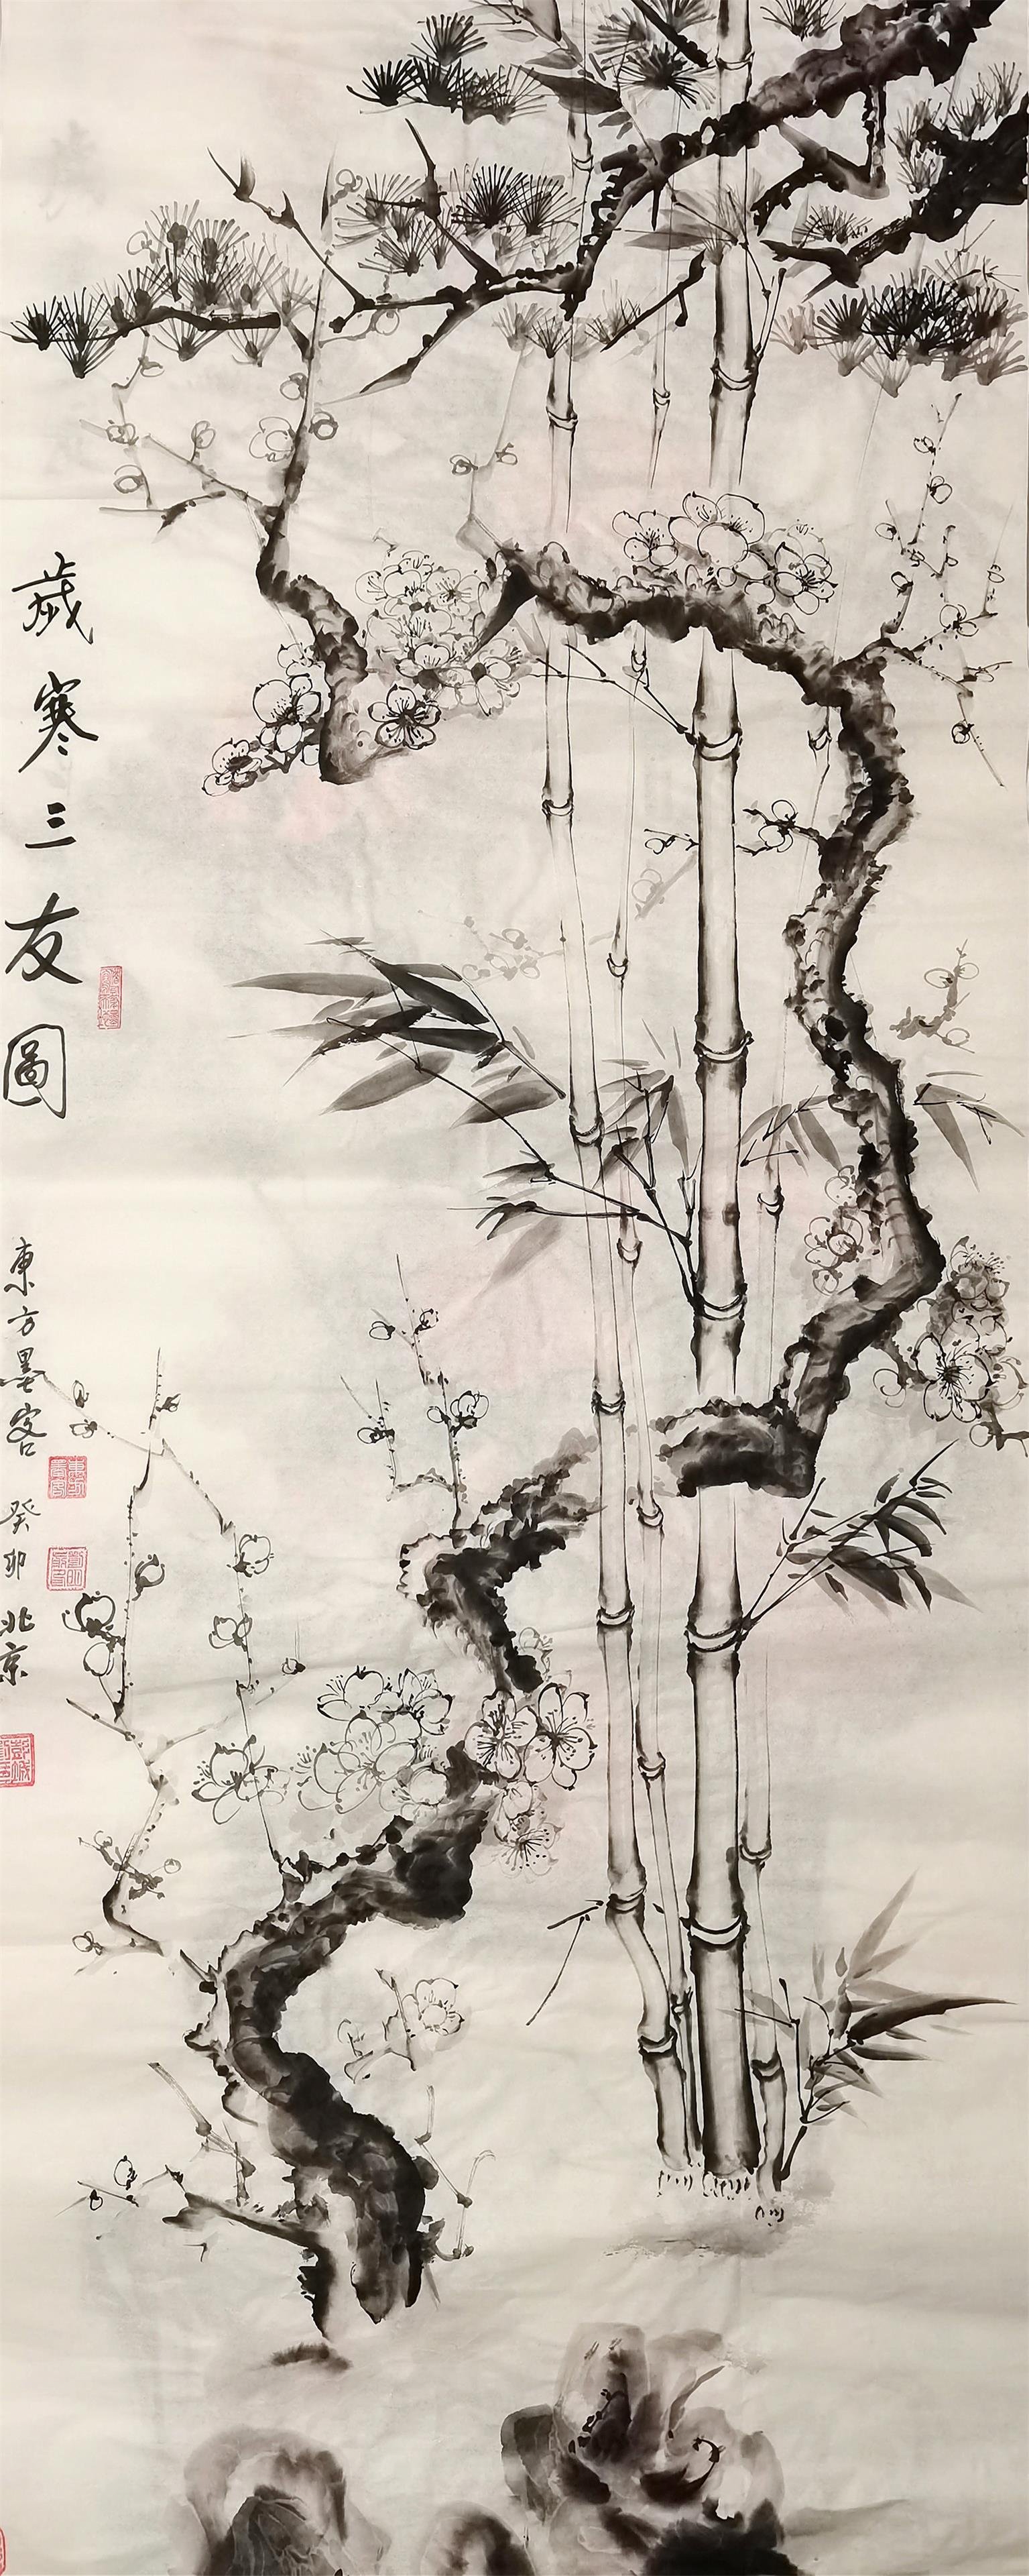 歲寒三友圖
東方墨客
癸卯
北京